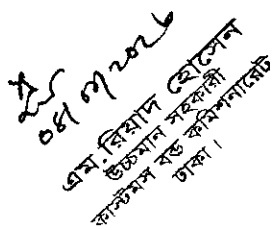 ০৪/০৩/২০২৬
এম. রিয়াদ হোসেন
উচ্চমান সহকারী
কাস্টমস বন্ড কমিশনারেট
ঢাকা।